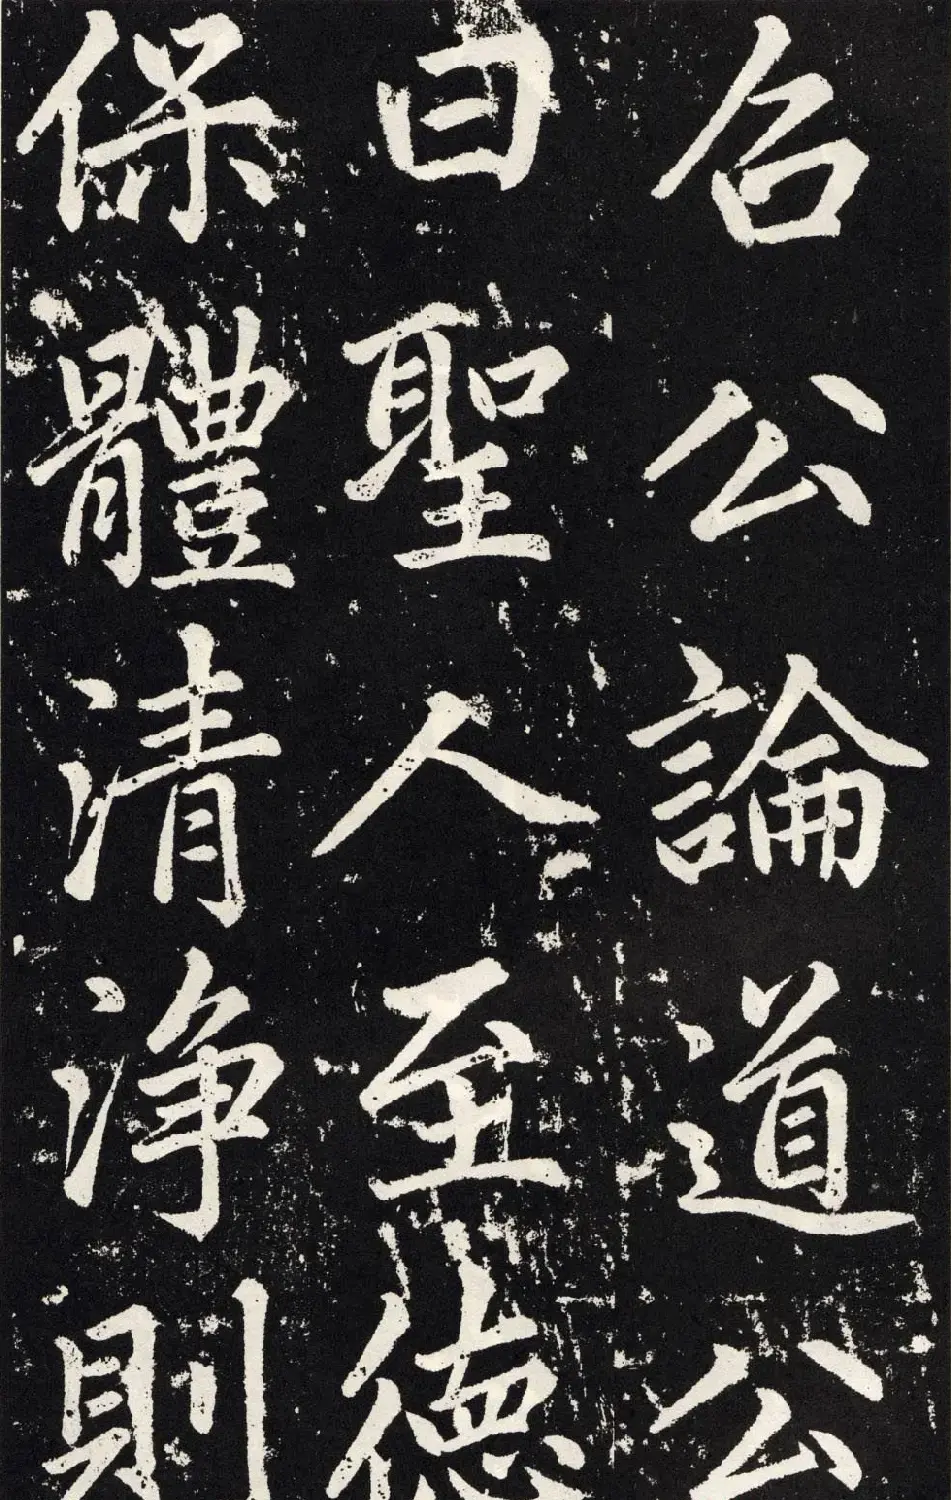 召公論道公
曰聖人至德
保體清淨則